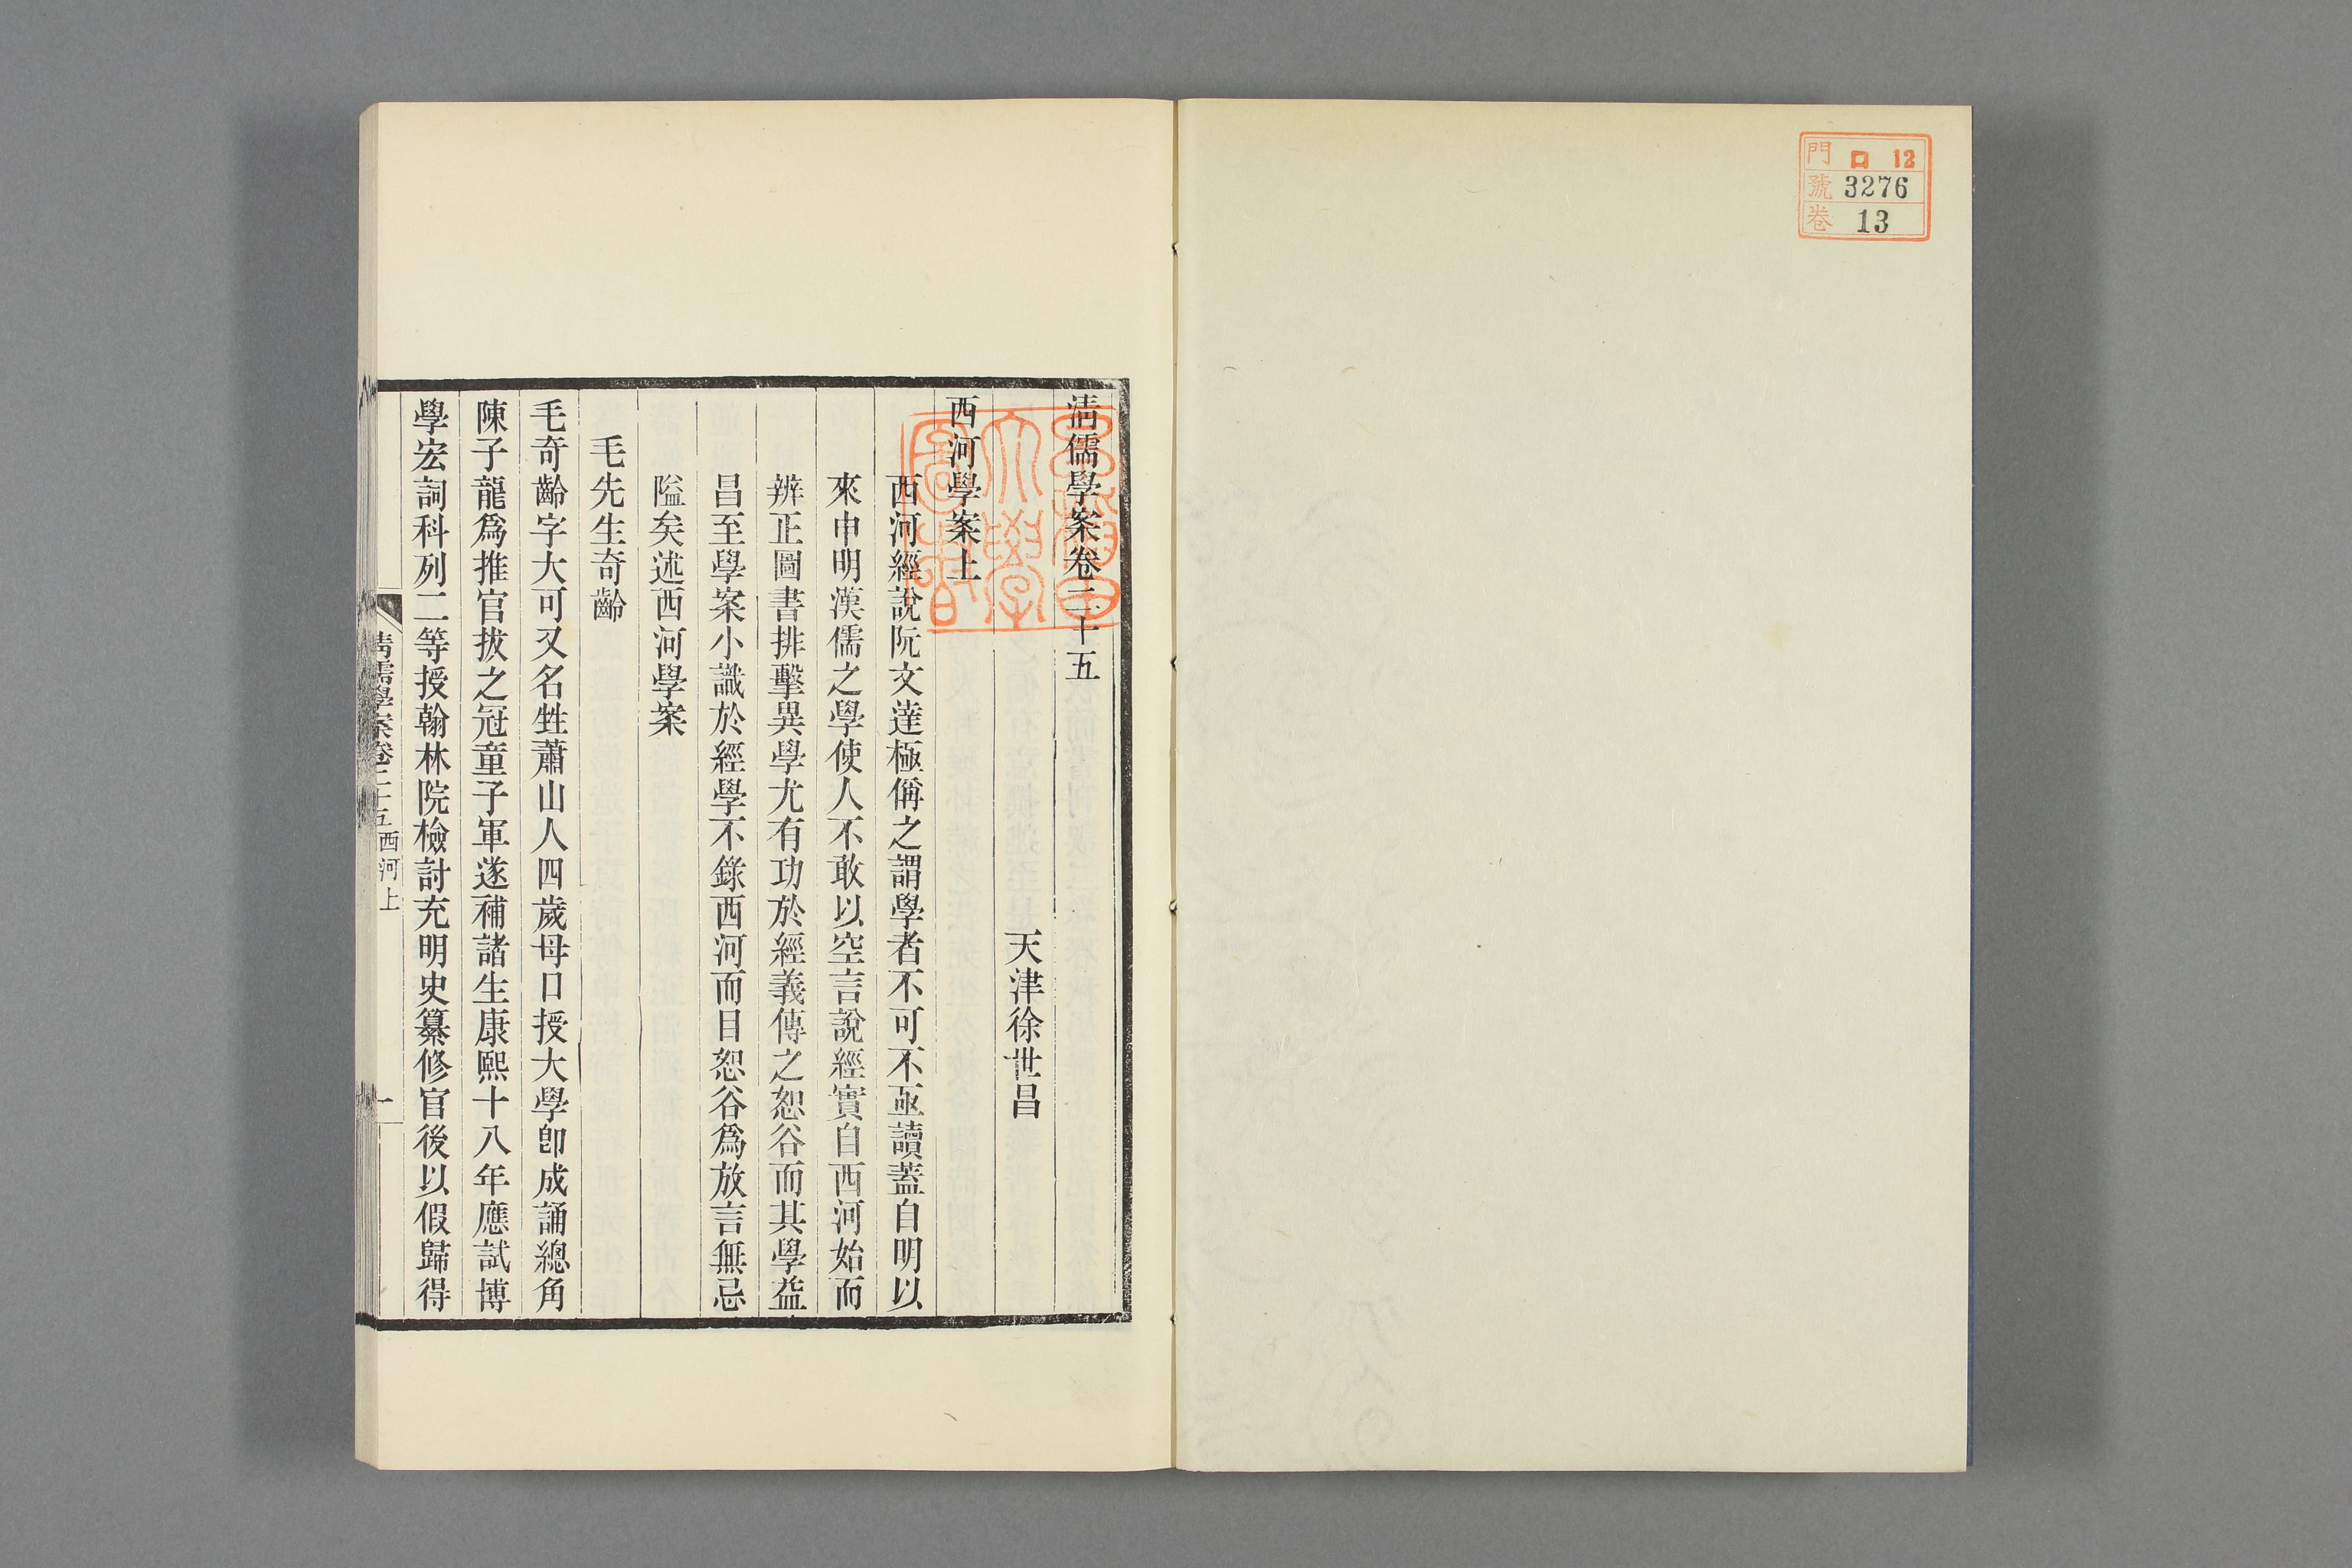 門 ロ 12
號 3276
卷 13
清儒學案卷二十五
天津徐世昌
西河學案上
西河經說阮文達極偁之謂學者不可不亟讀蓋自明以
來申明漢儒之學使人不敢以空言說經實自西河始而
辨正圖書排擊異學尤有功於經義傳之恕谷而其學益
昌至學案小識於經學不錄西河而目恕谷爲放言無忌
隘矣述西河學案
毛先生奇齡
毛奇齡字大可又名甡蕭山人四歲母口授大學卽成誦總角
陳子龍爲推官拔之冠童子軍遂補諸生康熙十八年應試博
學宏詞科列二等授翰林院檢討充明史纂修官後以假歸得
清儒學案卷二十五 西河上
一